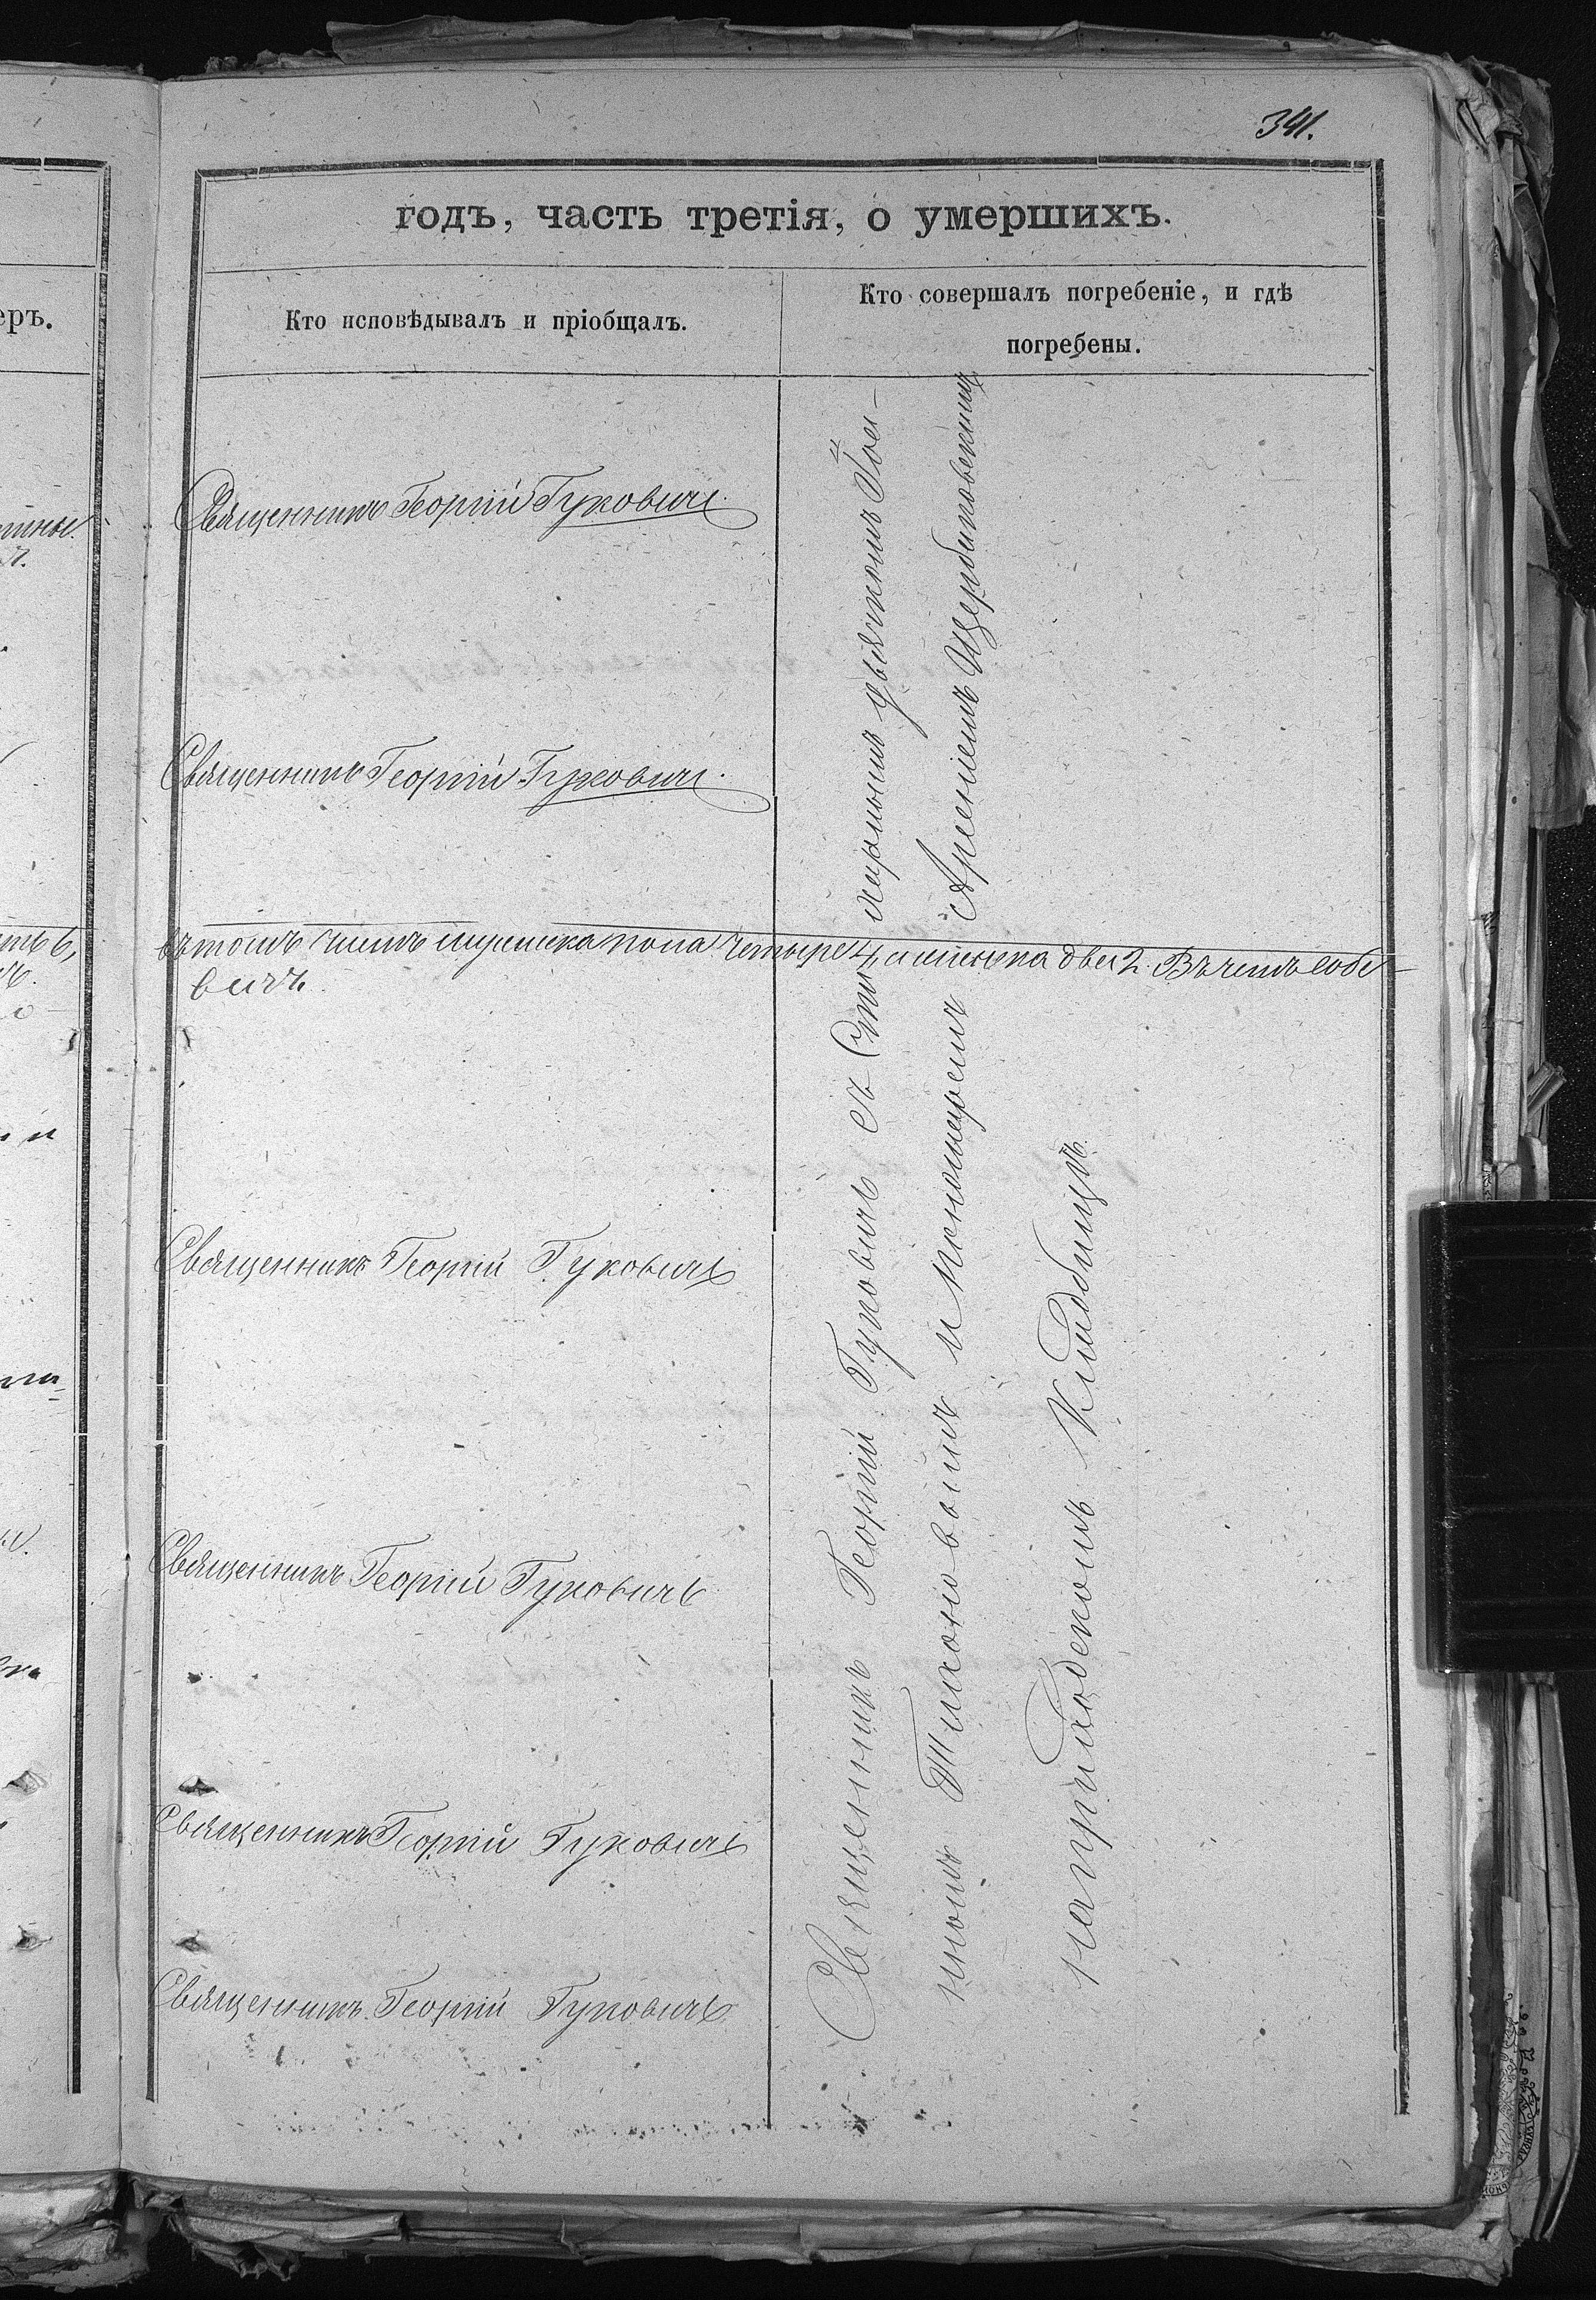 341.
годъ, часть третія, о умершихъ.
Кто исповѣдывалъ и пріобщалъ.
Кто совершалъ погребеніе, и гдѣ
погребены.
еръ.
Священникъ Георгій Гуковичъ.
Священникъ Георгій Гуковичъ.
въ томъ числѣ мужеска пола четыре 4, а женска две 2. Въ чемъ
Священникъ Георгій Гуковичъ
Священникъ Георгій Гуковичъ
Священникъ Георгій Гуковичъ
Священникъ Георгій Гуковичъ
Священникъ Георгій Гуковичъ съ дьячкомъ
Тихоновымъ и пономаремъ Арсеніемъ Щербиновскимъ
на приходскомъ Кладбищѣ.